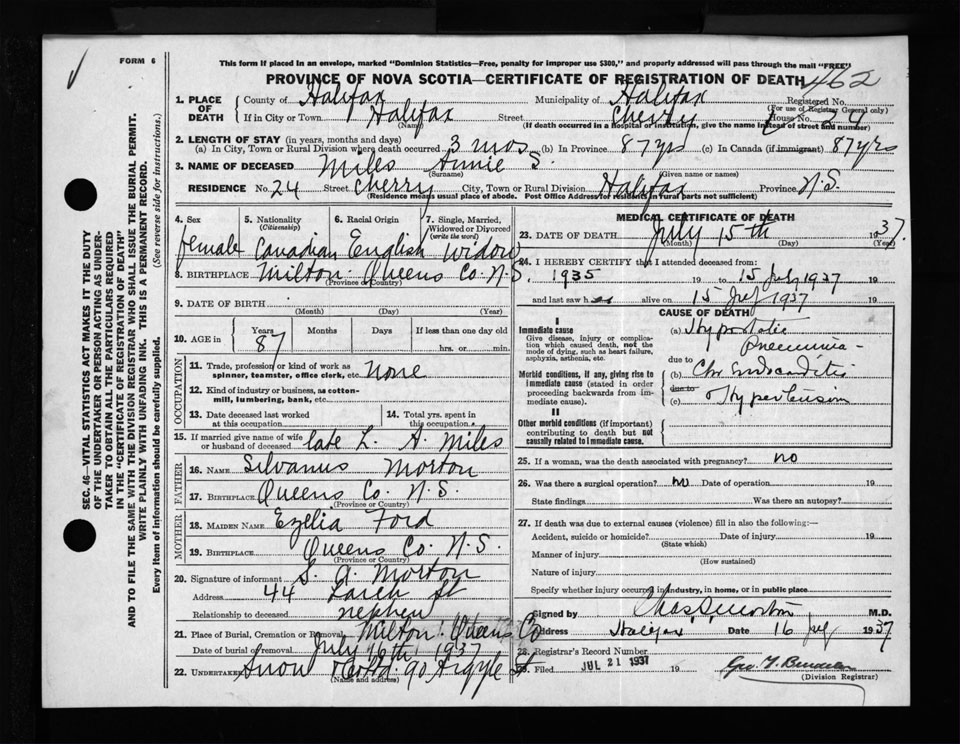 FORM 6
This form if placed in an envelope, marked "Dominion Statistics—Free, penalty for improper use $300," and properly addressed will pass through the mail "FREE"
PROVINCE OF NOVA SCOTIA—CERTIFICATE OF REGISTRATION OF DEATH 462
1. PLACE OF DEATH
County of Halifax Municipality of Halifax Registered No.
(For use of Registrar General only)
If in City or Town Halifax Street Cherry House No. 24
(Name) (If death occurred in a hospital or institution, give the name instead of street and number)
2. LENGTH OF STAY (in years, months and days)
(a) In City, Town or Rural Division where death occurred 3 mos (b) In Province 87 yrs (c) In Canada (if immigrant) 87 yrs
3. NAME OF DECEASED Miles Annie S.
(Surname) (Given name or names)
RESIDENCE No. 24 Street Cherry City, Town or Rural Division Halifax Province N.S.
(Residence means usual place of abode. Post Office Address for residents in rural parts not sufficient)
4. Sex female
5. Nationality (Citizenship) Canadian
6. Racial Origin English
7. Single, Married, Widowed or Divorced (write the word) Widow
8. BIRTHPLACE Milton Queens Co. N.S.
(Province or Country)
9. DATE OF BIRTH
(Month) (Day) (Year)
10. AGE in Years 87 Months Days If less than one day old
hrs. or min.
OCCUPATION
11. Trade, profession or kind of work as spinner, teamster, office clerk, etc. None
12. Kind of industry or business, as cotton-mill, lumbering, bank, etc.
13. Date deceased last worked at this occupation
14. Total yrs. spent in this occupation
15. If married give name of wife or husband of deceased late L. A. Miles
FATHER
16. NAME Silvanus Morton
17. BIRTHPLACE Queens Co. N.S.
(Province or Country)
MOTHER
18. MAIDEN NAME Ezelia Ford
19. BIRTHPLACE Queens Co. N.S.
(Province or Country)
20. Signature of informant S. A. Morton
Address 44 Larch St
Relationship to deceased nephew
21. Place of Burial, Cremation or Removal Milton Queens Co
Date of burial or removal July 16th 1937
22. UNDERTAKER Snow & Co Ltd. 90 Argyle St
(Name and address)
MEDICAL CERTIFICATE OF DEATH
23. DATE OF DEATH July 15th 1937.
(Month) (Day) (Year)
24. I HEREBY CERTIFY that I attended deceased from:
1935 19 to 15 July 1937 19
and last saw her alive on 15 July 1937 19
CAUSE OF DEATH
I
Immediate cause
Give disease, injury or complication which caused death, not the mode of dying, such as heart failure, asphyxia, asthenia, etc.
(a) Hypostatic
pneumonia
due to
Morbid conditions, if any, giving rise to immediate cause (stated in order proceeding backwards from immediate cause).
(b) Chr Endocarditis
due to
(c) Hypertension
II
Other morbid conditions (if important) contributing to death but not causally related to immediate cause.
25. If a woman, was the death associated with pregnancy? no
26. Was there a surgical operation? no Date of operation 19
State findings Was there an autopsy?
27. If death was due to external causes (violence) fill in also the following:—
Accident, suicide or homicide? Date of injury 19
(State which)
Manner of injury
(How sustained)
Nature of injury
Specify whether injury occurred in industry, in home, or in public place
Signed by Chas S Morton M.D.
Address Halifax Date 16 July 1937
28. Registrar's Record Number
29. Filed JUL 21 1937 19
(Division Registrar)
SEC. 46—VITAL STATISTICS ACT MAKES IT THE DUTY
OF THE UNDERTAKER OR PERSON ACTING AS UNDER-
TAKER TO OBTAIN ALL THE PARTICULARS REQUIRED
IN THE "CERTIFICATE OF DEATH"
AND TO FILE THE SAME WITH THE DIVISION REGISTRAR WHO SHALL ISSUE THE BURIAL PERMIT.
WRITE PLAINLY WITH UNFADING INK. THIS IS A PERMANENT RECORD.
Every item of information should be carefully supplied. (See reverse side for instructions.)